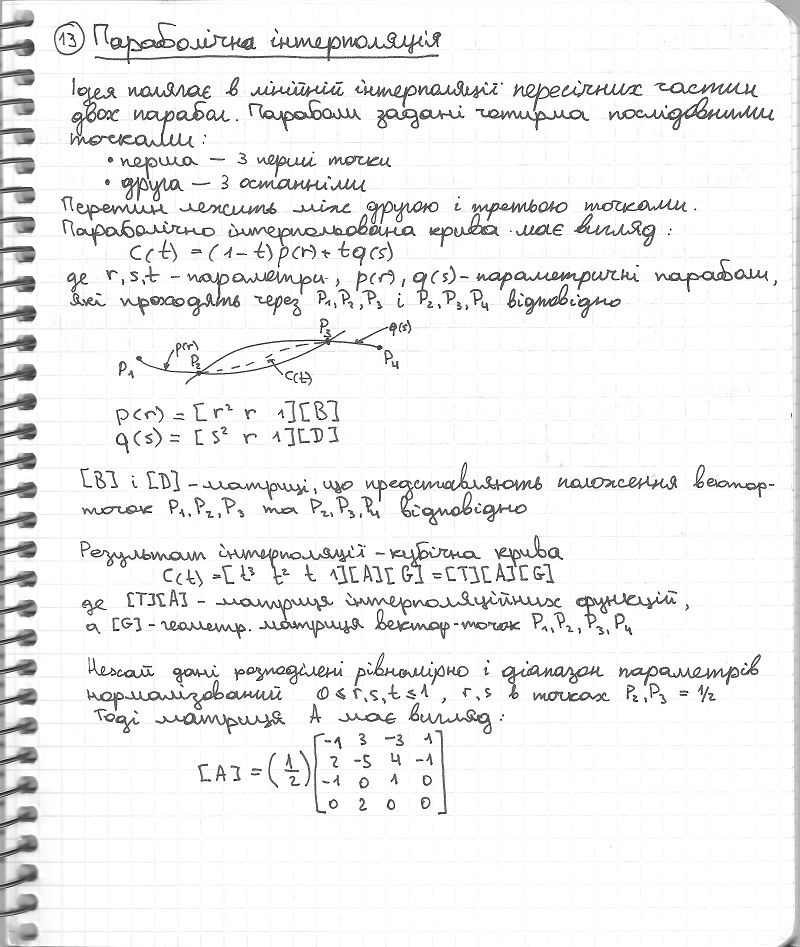 13 Параболічна інтерполяція
Ідея полягає в лінійній інтерполяції пересічних частин
двох парабол. Параболи задані чотирма послідовними
точками:
• перша — 3 перші точки
• друга — 3 останніми
Перетин лежить між другою і третьою точками.
Параболічно інтерпольована крива має вигляд:
C(t) = (1-t)p(r)+tq(s)
де r,s,t - параметри, p(r), q(s)-параметричні параболи,
які проходять через P₁,P₂,P₃ і P₂,P₃,P₄ відповідно
P₁ p(r) P₂ C(t) P₃ q(s) P₄
p(r) = [r² r 1][B]
q(s) = [s² r 1][D]
[B] і [D] - матриці, що представляють положення вектор-
точок P₁,P₂,P₃ та P₂,P₃,P₄ відповідно
Результат інтерполяції - кубічна крива
C(t) = [t³ t² t 1][A][G] = [T][A][G]
де [T][A] - матриця інтерполяційних функцій,
а [G] - геометр. матриця вектор-точок P₁,P₂,P₃,P₄
Нехай дані розподілені рівномірно і діапазон параметрів
нормалізований 0 ≤ r,s,t ≤ 1, r,s в точках P₂,P₃ = 1/2
Тоді матриця A має вигляд:
-1 3 -3 1
2 -5 4 -1
[A] = (1/2)
-1 0 1 0
0 2 0 0